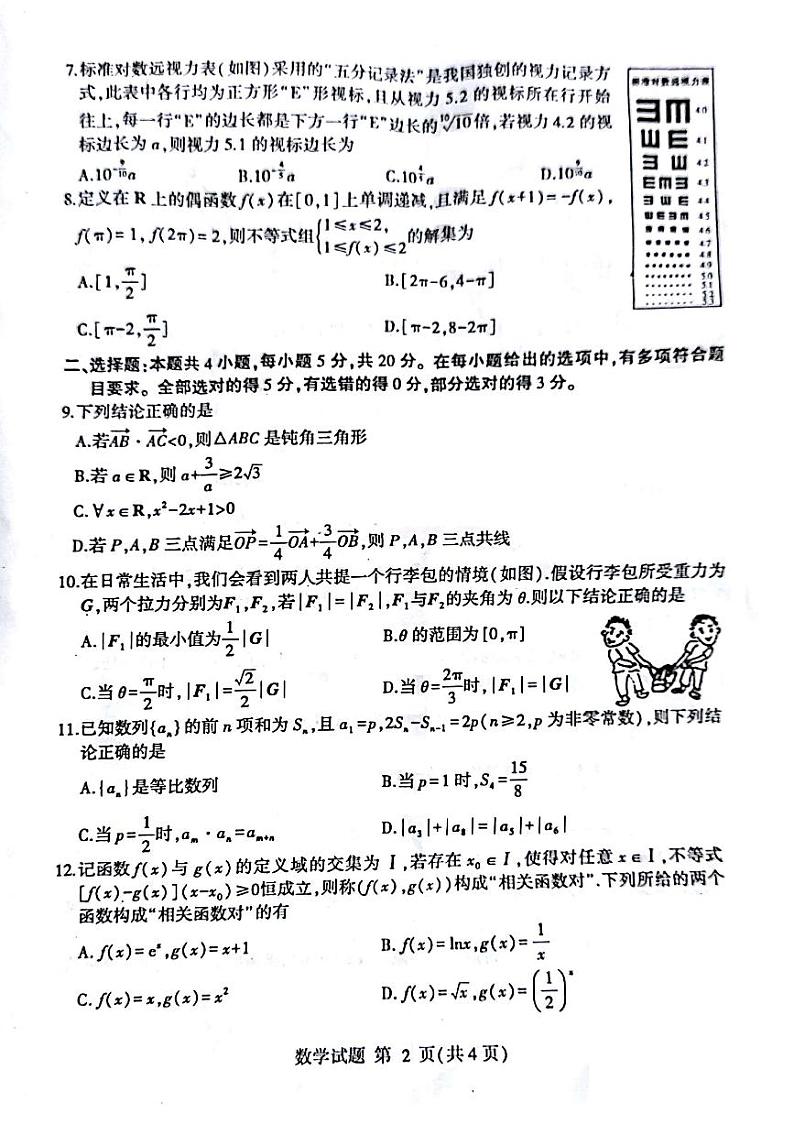 7.标准对数远视力表(如图)采用的“五分记录法”是我国独创的视力记录方
式,此表中各行均为正方形“E”形视标,且从视力 5.2 的视标所在行开始
往上,每一行“E”的边长都是下方一行“E”边长的\sqrt[10]{10}倍,若视力 4.2 的视
标边长为 a,则视力 5.1 的视标边长为
A.10^{-\frac{9}{10}}a B.10^{-\frac{4}{5}}a C.10^{\frac{4}{5}}a D.10^{\frac{9}{10}}a
标准对数远视力表
4.0
4.1
4.2
4.3
4.4
4.5
4.6
4.7
4.8
4.9
5.0
5.1
5.2
5.3
8.定义在 R 上的偶函数f(x)在[0,1]上单调递减,且满足f(x+1)=-f(x),
f(π)=1,f(2π)=2,则不等式组{1≤x≤2, 1≤f(x)≤2 的解集为
A.[1,\frac{π}{2}] B.[2π-6,4-π]
C.[π-2,\frac{π}{2}] D.[π-2,8-2π]
二、选择题:本题共 4 小题,每小题 5 分,共 20 分。在每小题给出的选项中,有多项符合题
目要求。全部选对的得 5 分,有选错的得 0 分,部分选对的得 3 分。
9.下列结论正确的是
A.若\overrightarrow{AB}·\overrightarrow{AC}<0,则△ABC 是钝角三角形
B.若 a∈R,则 a+\frac{3}{a}≥2\sqrt{3}
C.∀x∈R,x²-2x+1>0
D.若 P,A,B 三点满足\overrightarrow{OP}=\frac{1}{4}\overrightarrow{OA}+\frac{3}{4}\overrightarrow{OB},则 P,A,B 三点共线
10.在日常生活中,我们会看到两人共提一个行李包的情境(如图).假设行李包所受重力为
G,两个拉力分别为F₁,F₂,若|F₁|=|F₂|,F₁与F₂的夹角为 θ.则以下结论正确的是
A.|F₁|的最小值为\frac{1}{2}|G| B.θ 的范围为[0,π]
C.当 θ=\frac{π}{2}时,|F₁|=\frac{\sqrt{2}}{2}|G| D.当 θ=\frac{2π}{3}时,|F₁|=|G|
11.已知数列{aₙ}的前 n 项和为 Sₙ,且 a₁=p,2Sₙ-Sₙ₋₁=2p(n≥2,p 为非零常数),则下列结
论正确的是
A.{aₙ}是等比数列 B.当 p=1 时,S₄=\frac{15}{8}
C.当 p=\frac{1}{2}时,aₘ·aₙ=aₘ₊ₙ D.|a₃|+|a₈|=|a₅|+|a₆|
12.记函数f(x)与 g(x)的定义域的交集为 I,若存在 x₀∈I,使得对任意 x∈I,不等式
[f(x)-g(x)](x-x₀)≥0恒成立,则称(f(x),g(x))构成“相关函数对”.下列所给的两个
函数构成“相关函数对”的有
A.f(x)=eˣ,g(x)=x+1 B.f(x)=lnx,g(x)=\frac{1}{x}
C.f(x)=x,g(x)=x² D.f(x)=\sqrt{x},g(x)=(\frac{1}{2})ˣ
数学试题 第 2 页(共 4 页)